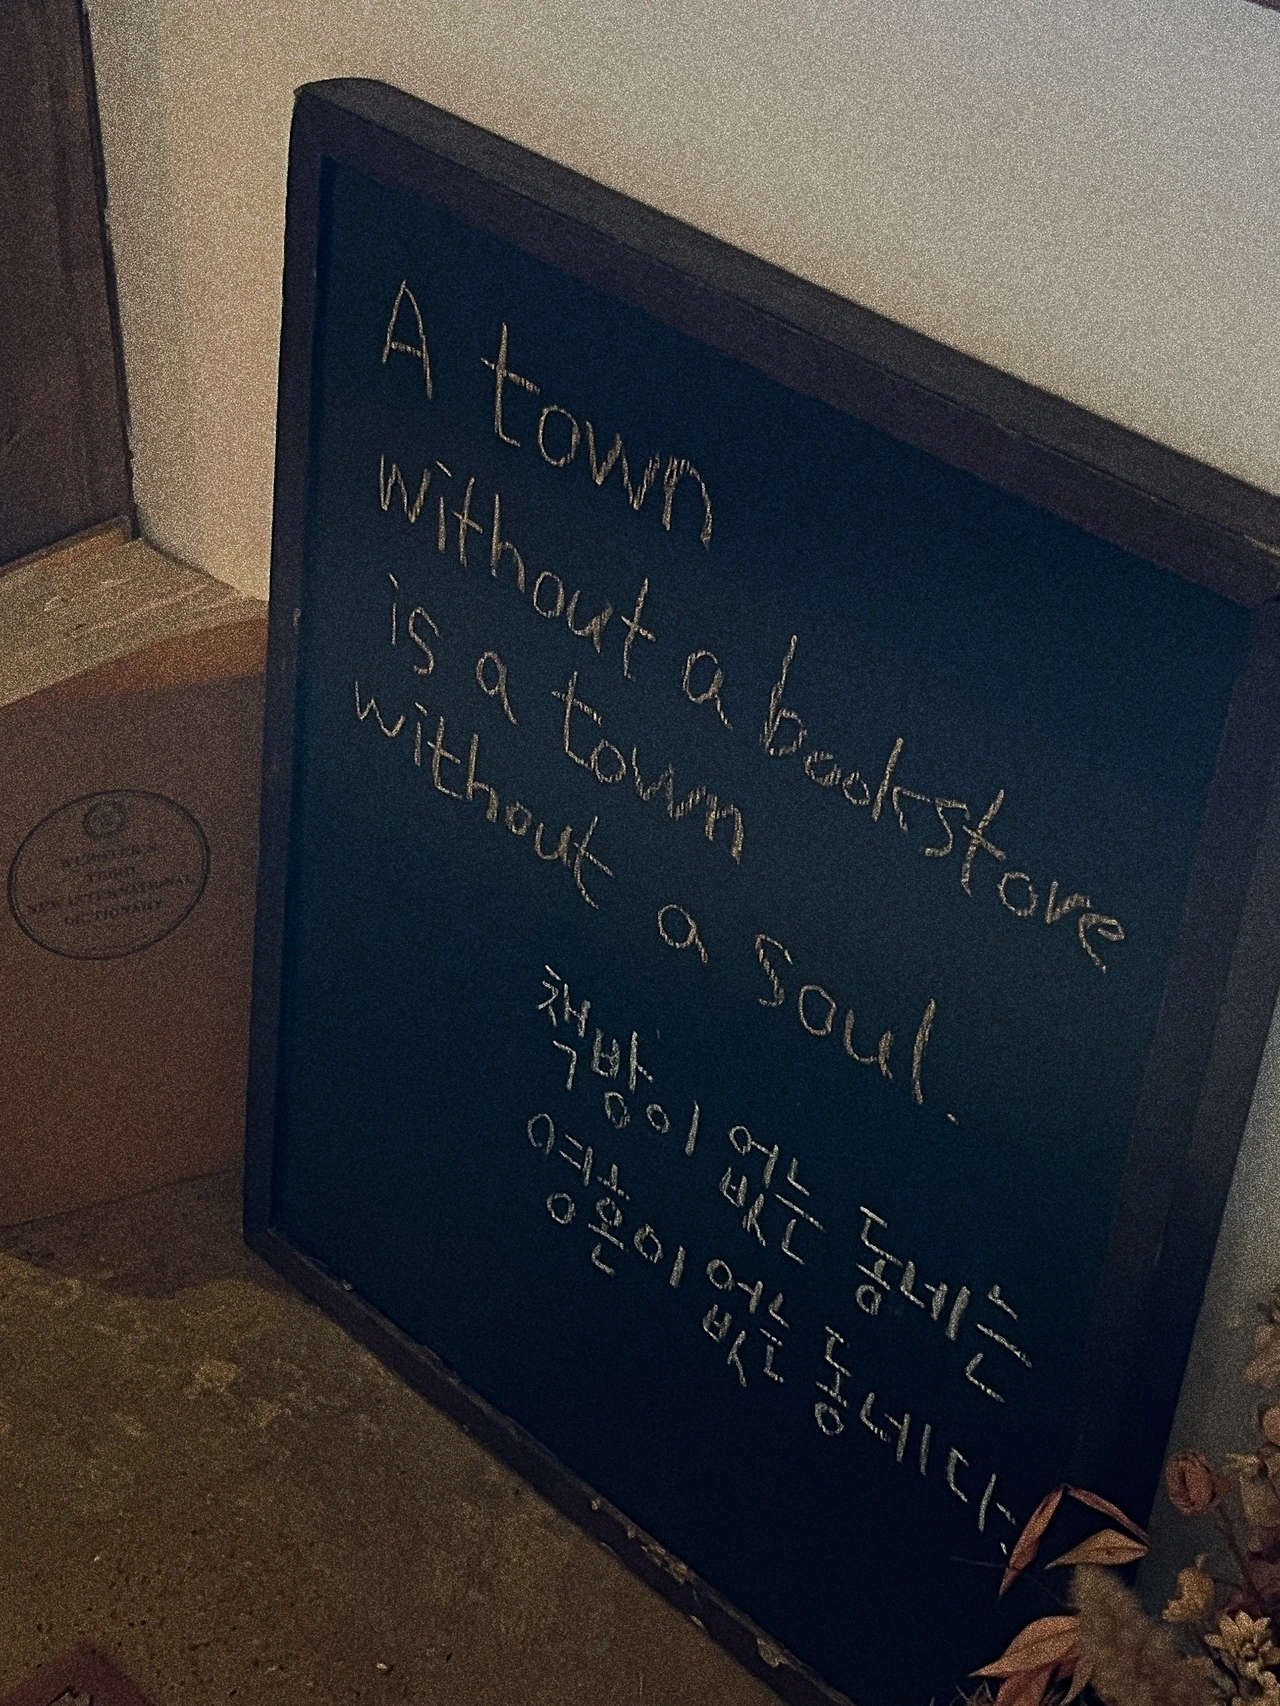 A town
without a bookstore
is a town
without a soul.
책방이 없는 동네는
영혼이 없는 동네다.
WEBSTER'S
THIRD
NEW INTERNATIONAL
DICTIONARY